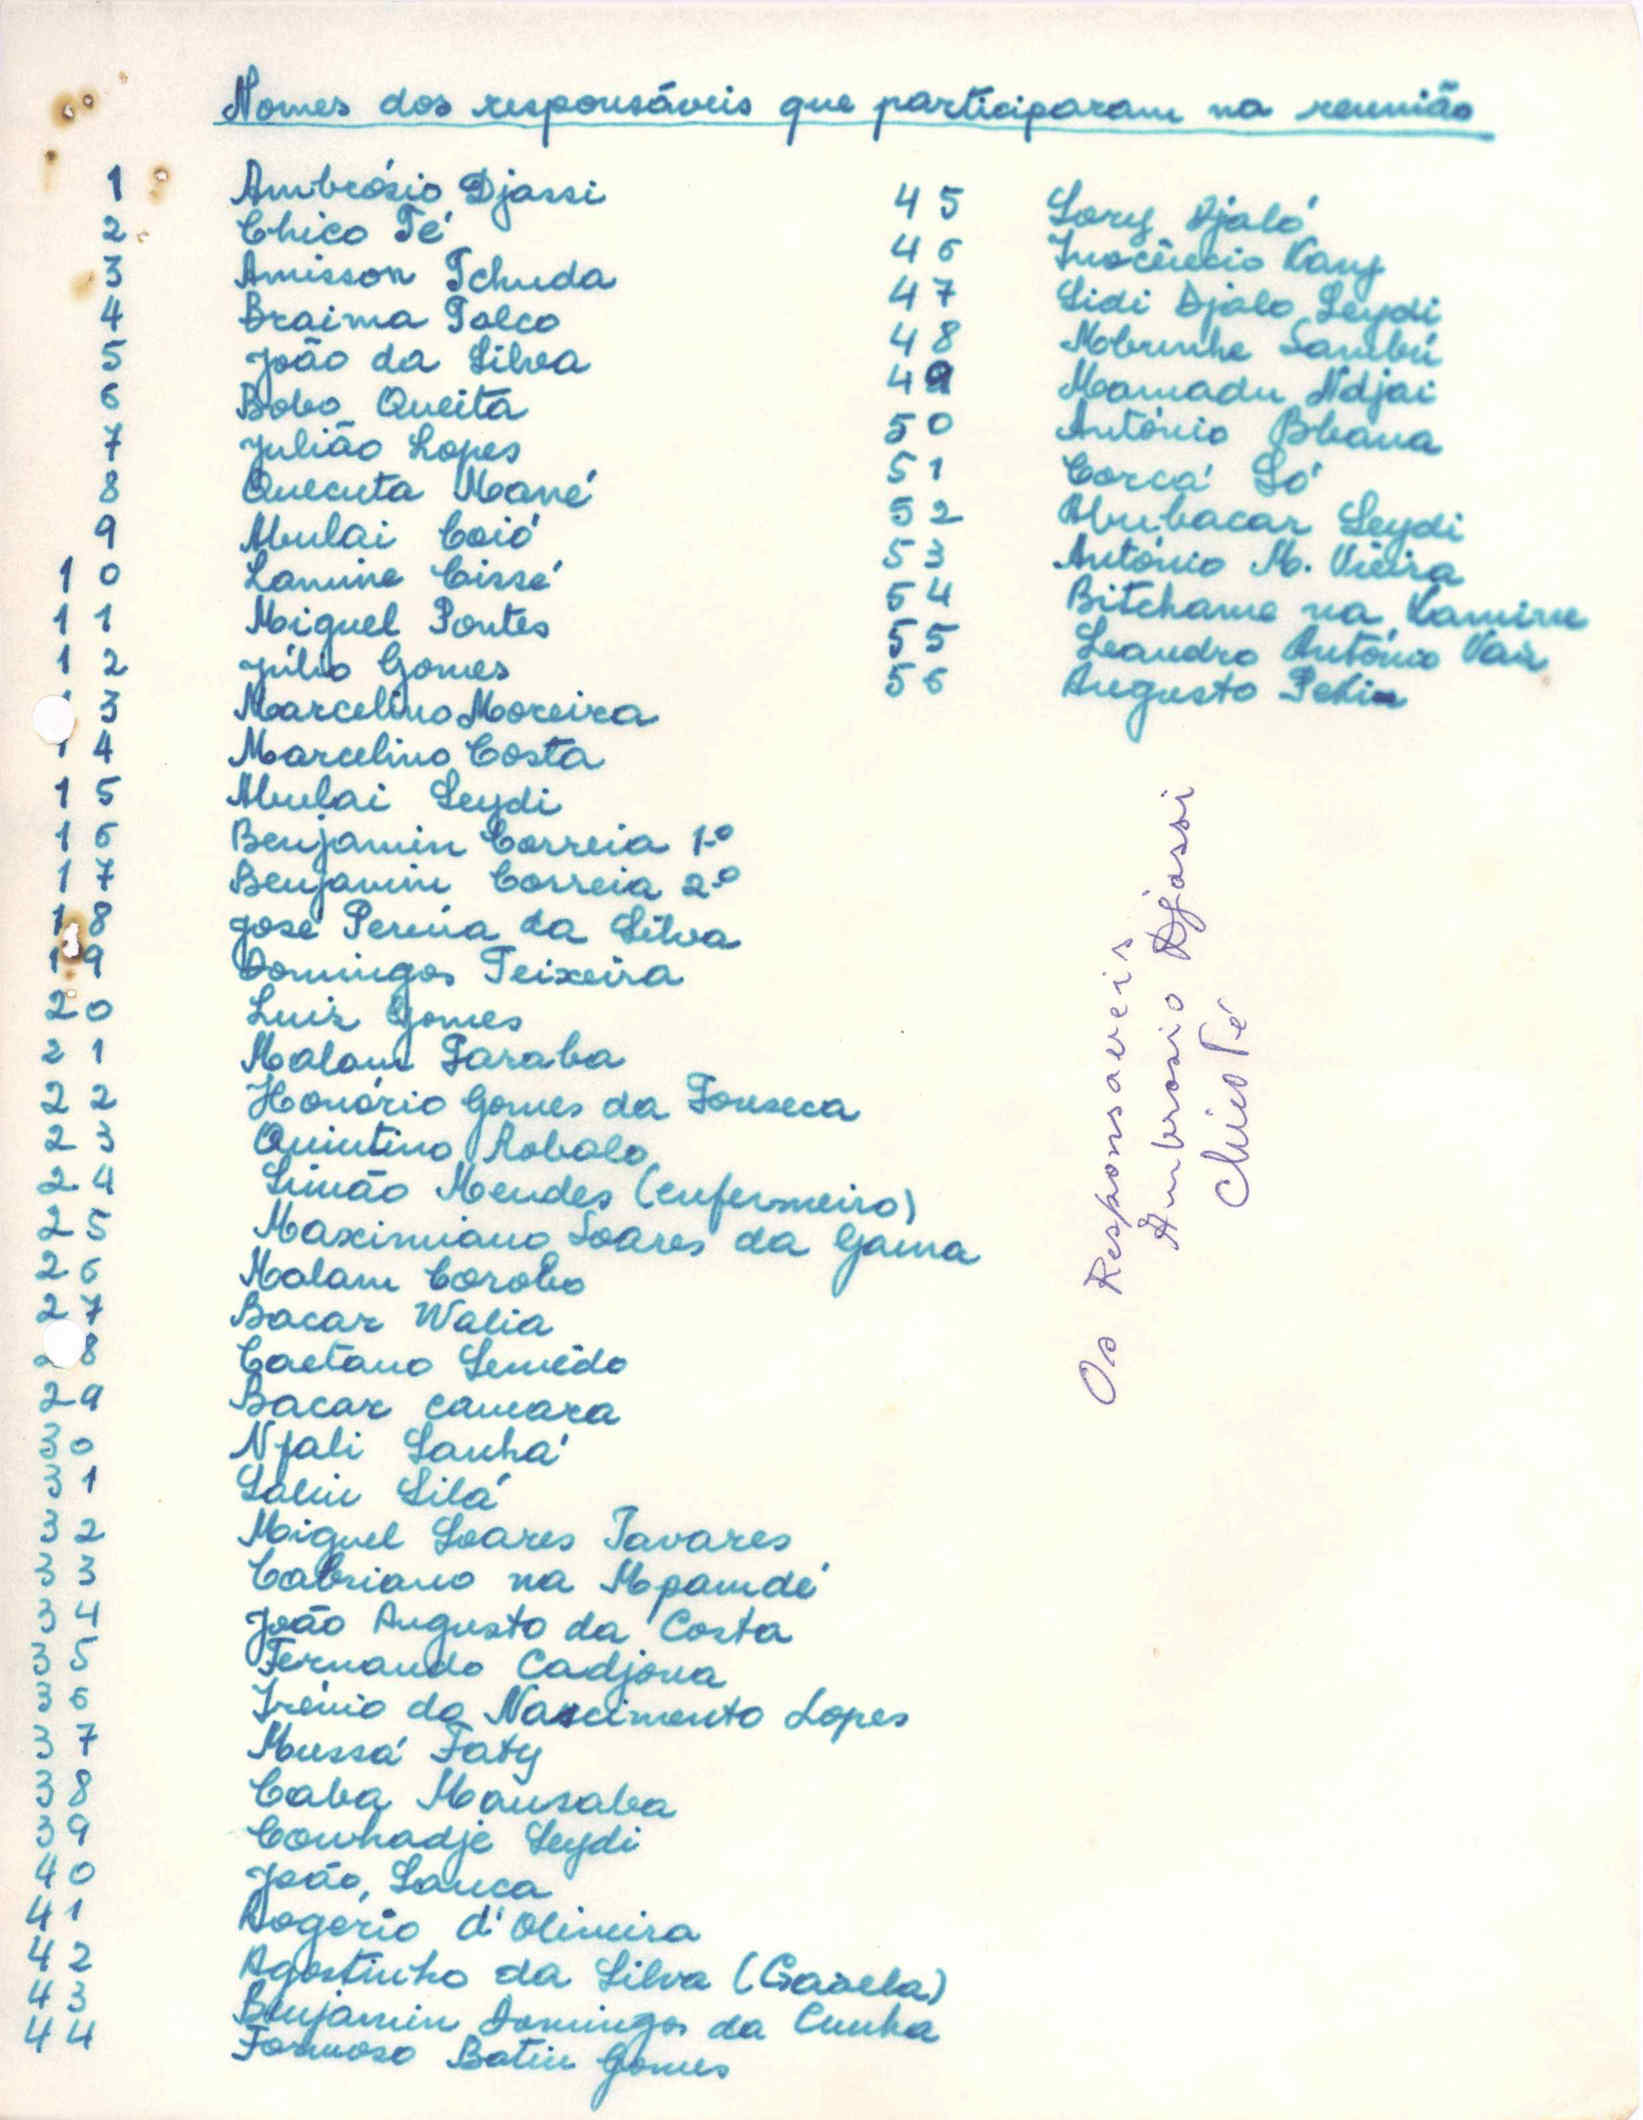 Nomes dos responsáveis que participaram na reunião
1 Ambrósio Djassi
2 Chico Té
3 Amisson Tchuda
4 Braima Tolco
5 João da Silva
6 Bobo Queita
7 Julião Lopes
8 Quecuta Mané
9 Abulai Coió
10 Lamine Cissé
11 Miguel Pontes
12 Júlio Gomes
13 Marcelino Moreira
14 Marcelino Costa
15 Abulai Seydi
16 Benjamin Correia 1.º
17 Benjamin Correia 2.º
18 José Pereira da Silva
19 Domingos Teixeira
20 Luiz Gomes
21 Malam Faraba
22 Honório Gomes da Fonseca
23 Quintino Robalo
24 Simão Mendes (enfermeiro)
25 Maximiano Soares da Gama
26 Malam Corobo
27 Bacar Walia
28 Caetano Semêdo
29 Bacar camara
30 Njali Sanhá
31 Saliu Silá
32 Miguel Soares Tavares
33 Cabriano na Mpamdé
34 João Augusto da Costa
35 Fernando Cadjona
36 Irénio do Nascimento Lopes
37 Mussá Faty
38 Caba Mansaba
39 Conhadje Seydi
40 João Sanca
41 Rogério d'Oliveira
42 Agostinho da Silva (Gazela)
43 Benjamin Domingos da Cunha
44 Formoso Batiu Gomes
45 Sory Djaló
46 Inocêncio Kany
47 Sidi Djalo Seydi
48 Mobrunhe Sambú
49 Mamadu Ndjai
50 António Bbana
51 Corcá Só
52 Abubacar Seydi
53 António M. Vieira
54 Bitchame na Kamine
55 Leandro António Vaz
56 Augusto Pekin
Os Responsaveis
Ambrosio Djassi
Chico Té